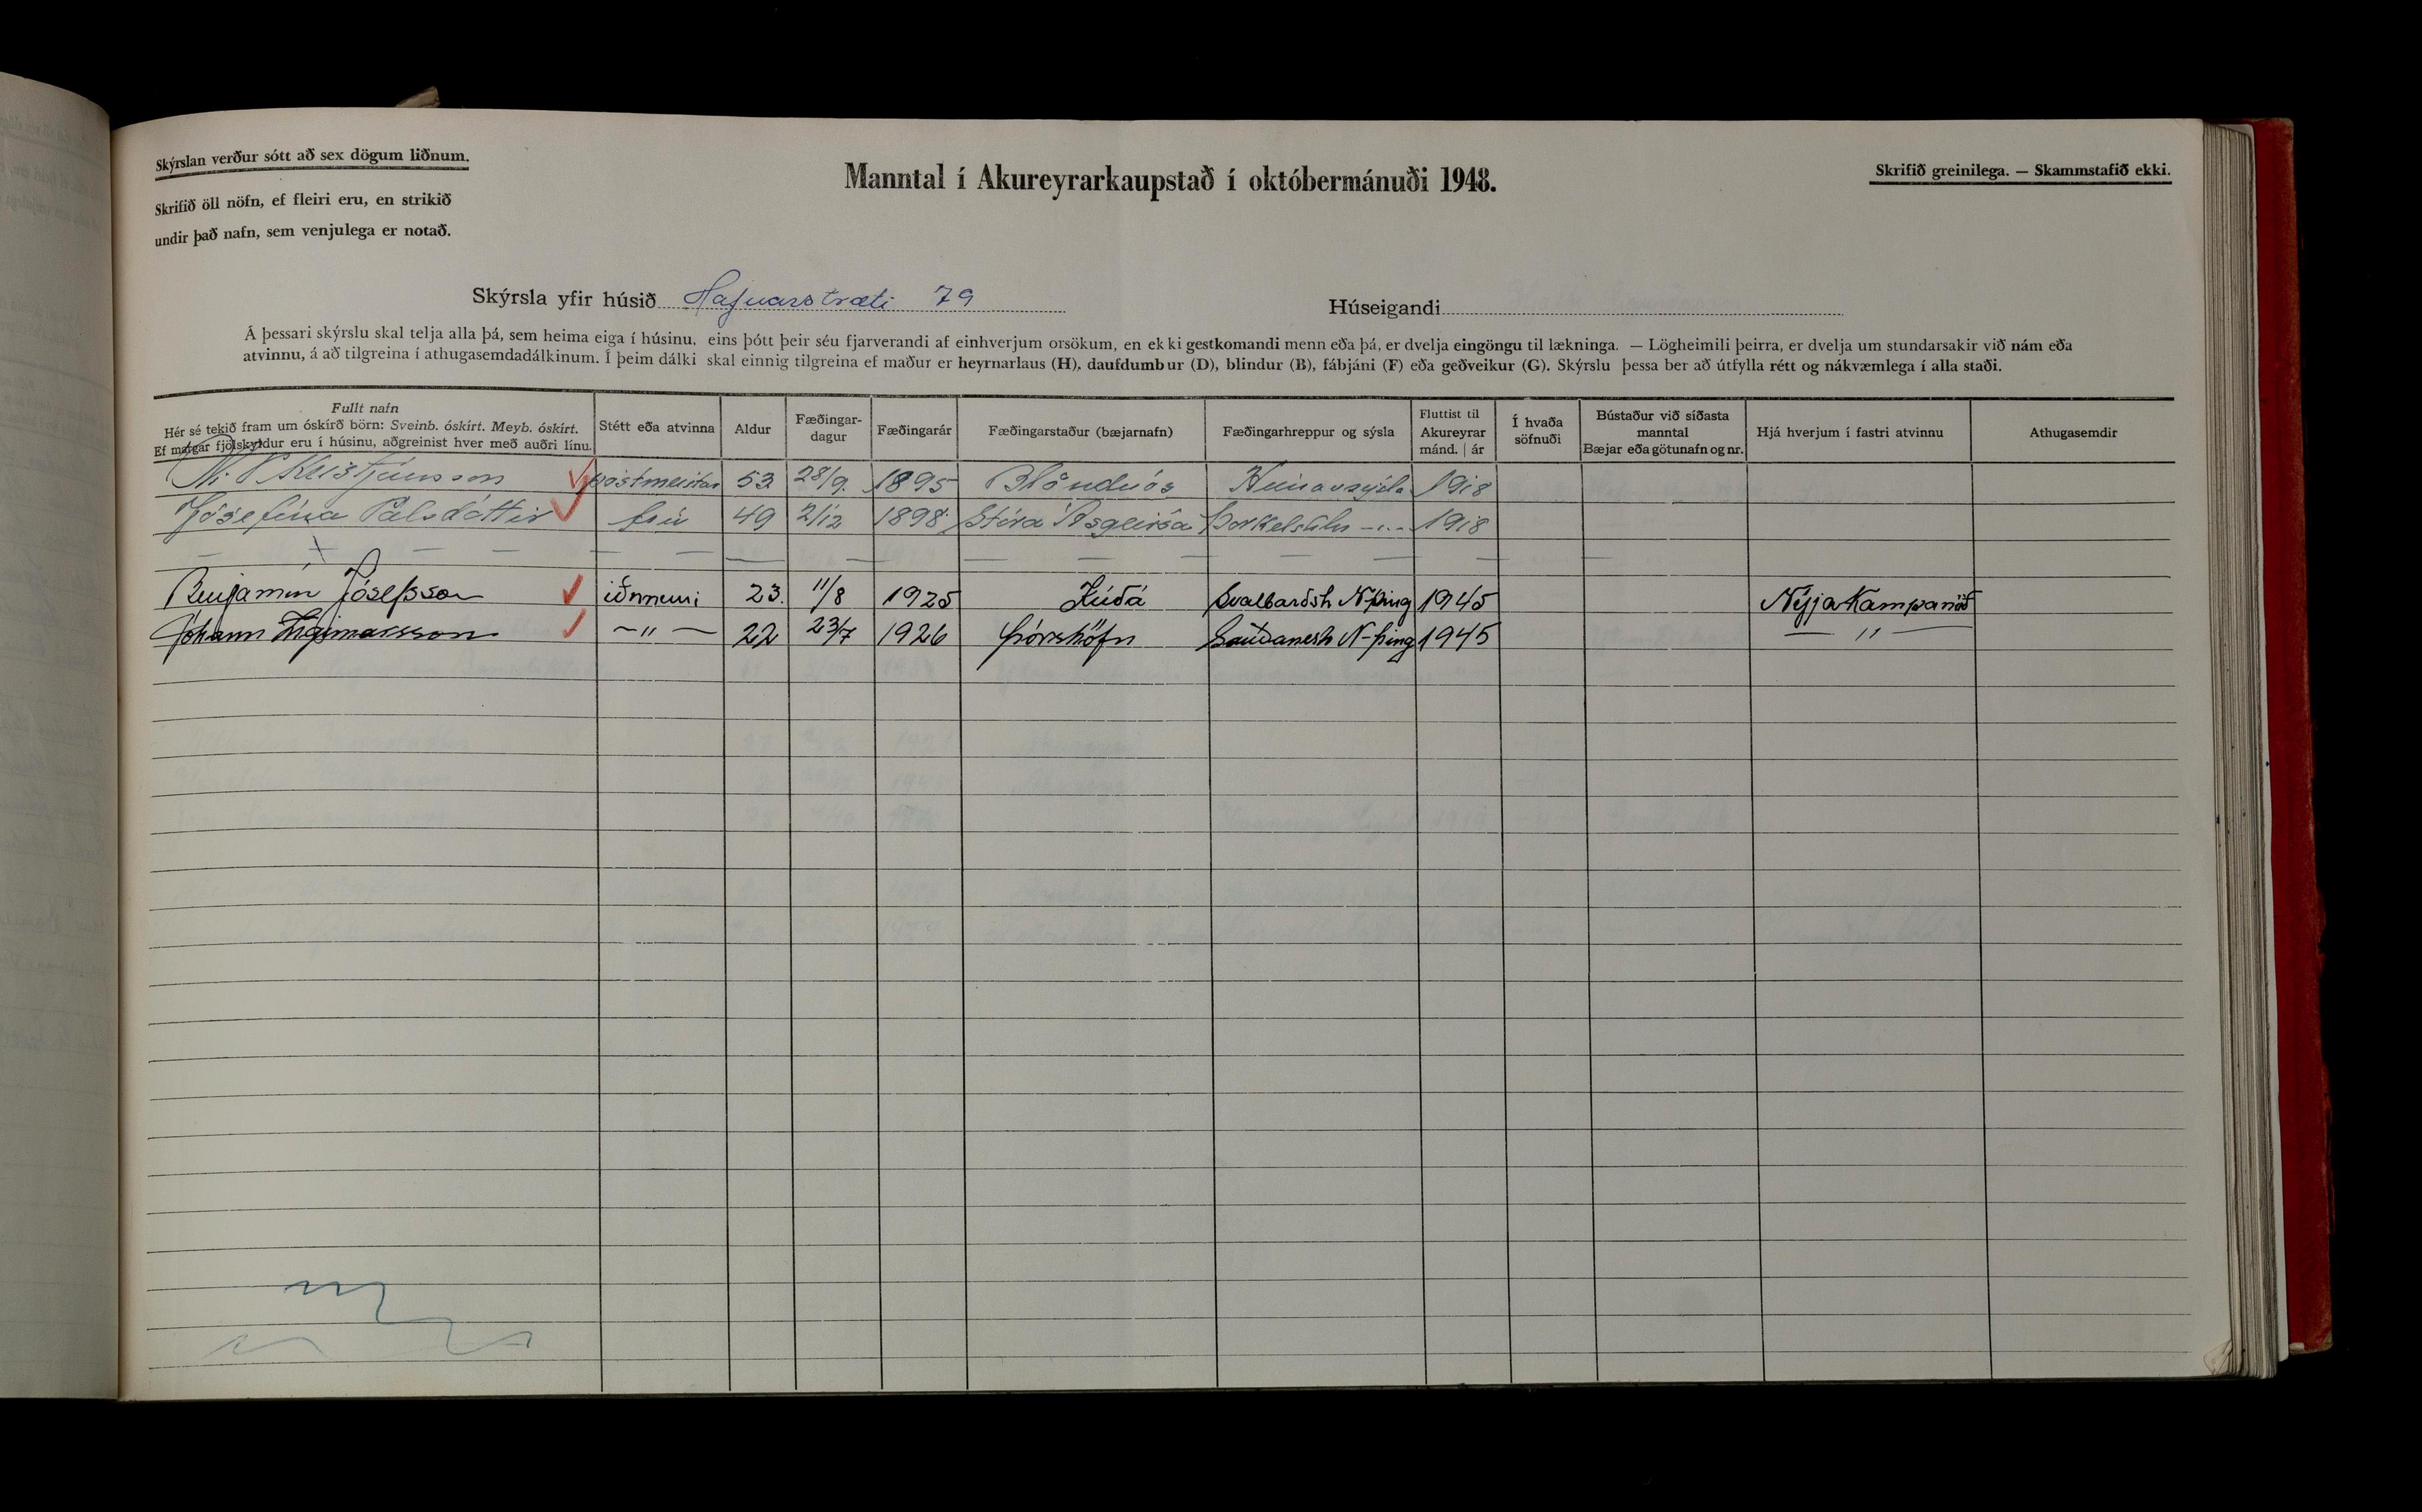 Skýrslan verður sótt að sex dögum liðnum.
Skrifið öll nöfn, ef fleiri eru, en strikið
undir það nafn, sem venjulega er notað.
Manntal í Akureyrarkaupstað í októbermánuði 1948.
Skrifið greinilega. — Skammstafið ekki.
Skýrsla yfir húsið Hafnarstræti 79
Húseigandi
Á þessari skýrslu skal telja alla þá, sem heima eiga í húsinu, eins þótt þeir séu fjarverandi af einhverjum orsökum, en ekki gestkomandi menn eða þá, er dvelja eingöngu til lækninga. — Lögheimili þeirra, er dvelja um stundarsakir við nám eða
atvinnu, á að tilgreina í athugasemdadálkinum. Í þeim dálki skal einnig tilgreina ef maður er heyrnarlaus (H), daufdumbur (D), blindur (B), fábjáni (F) eða geðveikur (G). Skýrslu þessa ber að útfylla rétt og nákvæmlega í alla staði.
Fullt nafn
Hér sé tekið fram um óskírð börn: Sveinb. óskírt. Meyb. óskírt.
Ef margar fjölskyldur eru í húsinu, aðgreinist hver með auðri línu.
Stétt eða atvinna
Aldur
Fæðingar-
dagur
Fæðingarár
Fæðingarstaður (bæjarnafn)
Fæðingarhreppur og sýsla
Fluttist til
Akureyrar
mánd. | ár
Í hvaða
söfnuði
Bústaður við síðasta
manntal
Bæjar eða götunafn og nr.
Hjá hverjum í fastri atvinnu
Athugasemdir
Kristjánsson póstmeistar 53 28/9. 1895 Blönduós Húnavsýsla 1918
Jósefína Pálsdóttir frú 49 2/12 1898 Stóra Ásgeirsá Þorkelshhr —"— 1918
Benjamín Jósefsson iðnnemi 23. 11/8 1925 Kúðá Svalbarðsh N-Þing 1945 Nýja Kampaníið
Jóhann Ingimarsson —"— 22 23/7 1926 Þórshöfn Sauðanesh N-Þing 1945 —"—